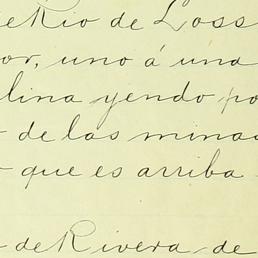 Rio de Loss
or, uno á una
lina yendo po
de las minas
que es arriba
de Rivera de